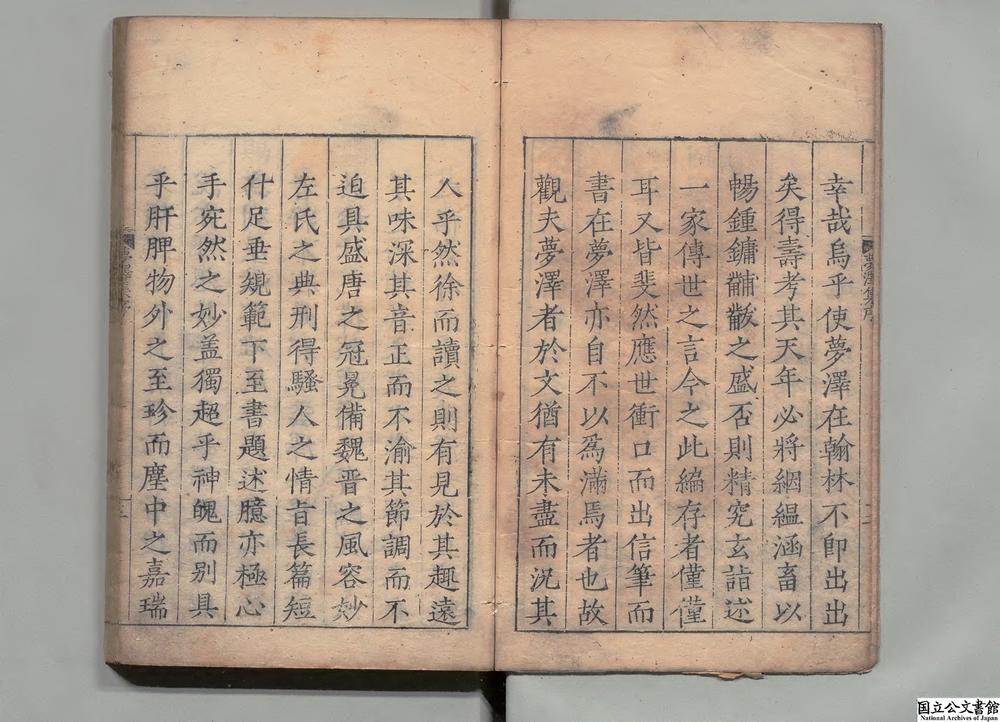 幸哉烏乎使夢澤在翰林不即出出
矣得壽考其天年必將絪縕涵畜以
暢鍾鏞黼黻之盛否則精究玄詣述
一家傳世之言今之此編存者僅僅
耳又皆斐然應世衝口而出信筆而
書在夢澤亦自不以爲滿焉者也故
觀夫夢澤者於文猶有未盡而況其
人乎然徐而讀之則有見於其趣遠
其味深其音正而不渝其節調而不
迫具盛唐之冠冕備魏晋之風容妙
左氏之典刑得騷人之情旨長篇短
什足垂規範下至書題述臆亦極心
手宛然之妙盖獨超乎神魄而别具
乎肝脾物外之至珍而塵中之嘉瑞
夢澤集序
国立公文書館
National Archives of Japan